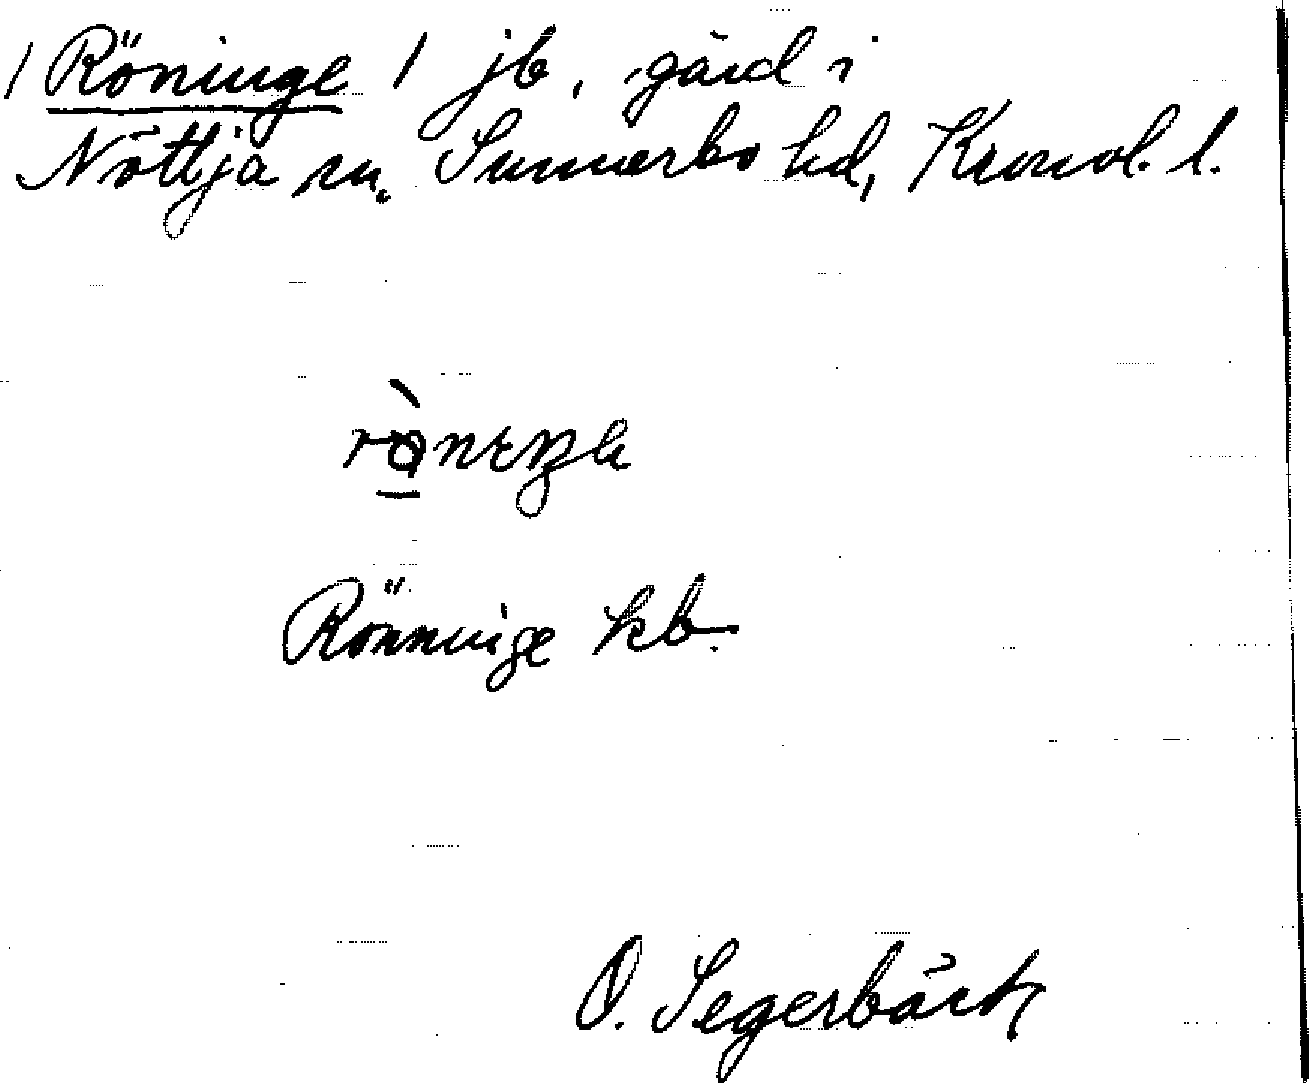 / Röninge / jb, gård i
Nöttja sn. Sunnerbo hd, Kronob. l.
Rönninge kb.
O. Segerbäck